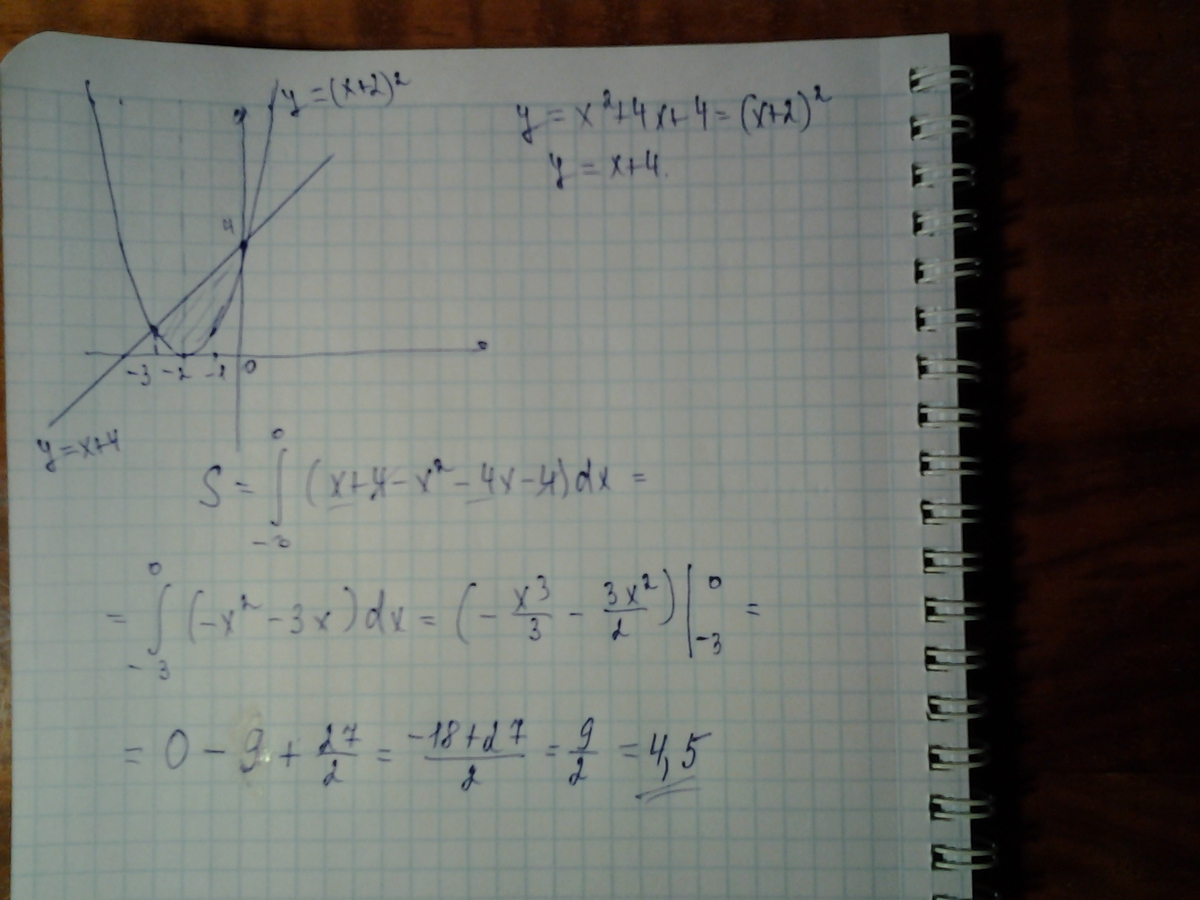 y = (x+2)²
y = x²+4x+4 = (x+2)²
y = x+4.
4
-3 -2 -1 0
y = x+4
S = ∫₋₃⁰ (x+4-x²-4x-4)dx =
= ∫₋₃⁰ (-x²-3x)dx = (-x³/3 - 3x²/2)|₋₃⁰ =
= 0 - 9 + 27/2 = (-18+27)/2 = 9/2 = 4,5